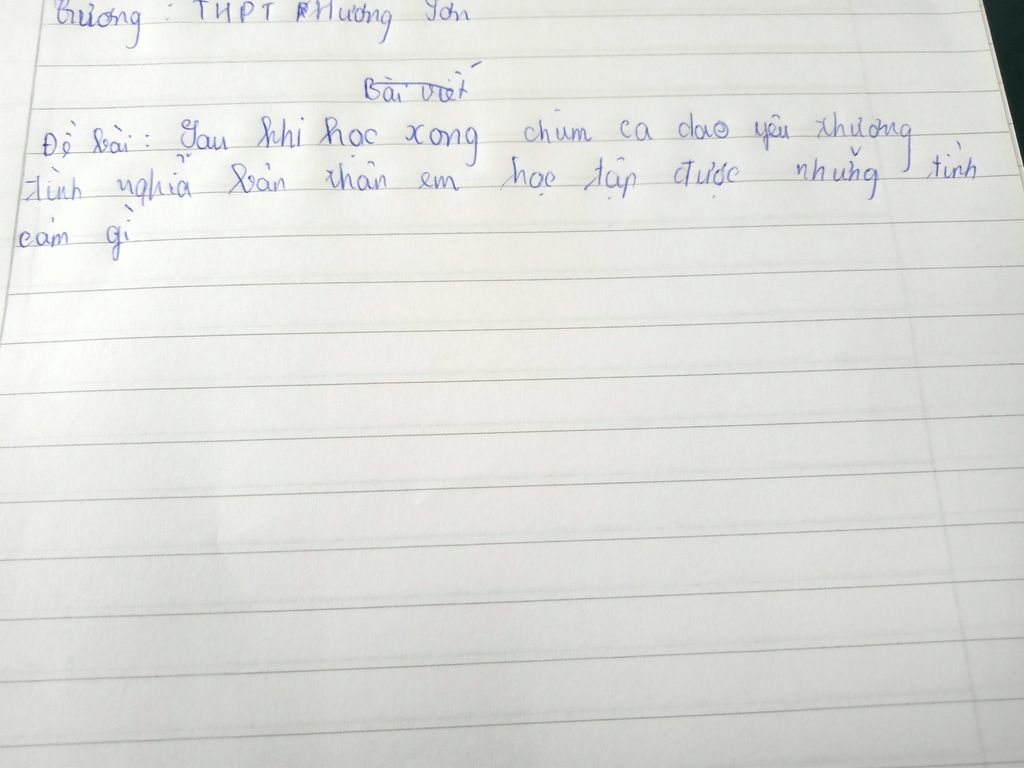 Trường : THPT Hương Sơn
Bài viết
Đề bài : Sau khi học xong chùm ca dao yêu thương
tình nghĩa bản thân em học tập được những tình
cảm gì